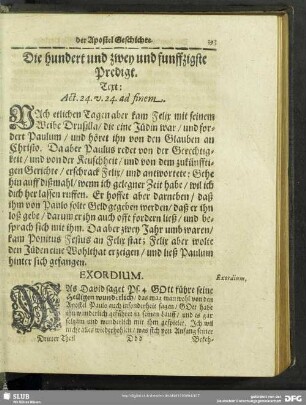 der Apostel Geschichte. 393
Die hundert und zwey und funffzigste
Predigt.
Text:
Act. 24. v. 24. ad finem.
NAch etlichen Tagen aber kam Felix mit seinem
Weibe Drusilla, die eine Jüdin war, und for-
dert Paulum, und höret ihn von den Glauben an
Christo. Da aber Paulus redet von der Gerechtig-
keit, und von der Keuschheit, und von dem zukünffti-
gen Gerichte, erschrack Felix, und antwortete: Gehe
hin auff dißmahl, wenn ich gelegner Zeit habe, wil ich
dich her lassen ruffen. Er hoffet aber darneben, daß
ihm von Paulo solte Geld gegeben werden, daß er ihn
loß gebe, darum er ihn auch offt fordern ließ, und be-
sprach sich mit ihm. Da aber zwey Jahr umb waren,
kam Pontius Festus an Felix stat; Felix aber wolte
den Jüden eine Wohlthat erzeigen, und ließ Paulum
hinter sich gefangen.
EXORDIUM. Exordium.
WAs David saget Ps. 4 GOtt führe seine
Heiligen wunderlich, das mag man wohl von den
Apostel Paulo auch insonderheit sagen, GOtt habe
ihn wunderlich geführet in seinen Lauff, und
Dritter Theil Ddd